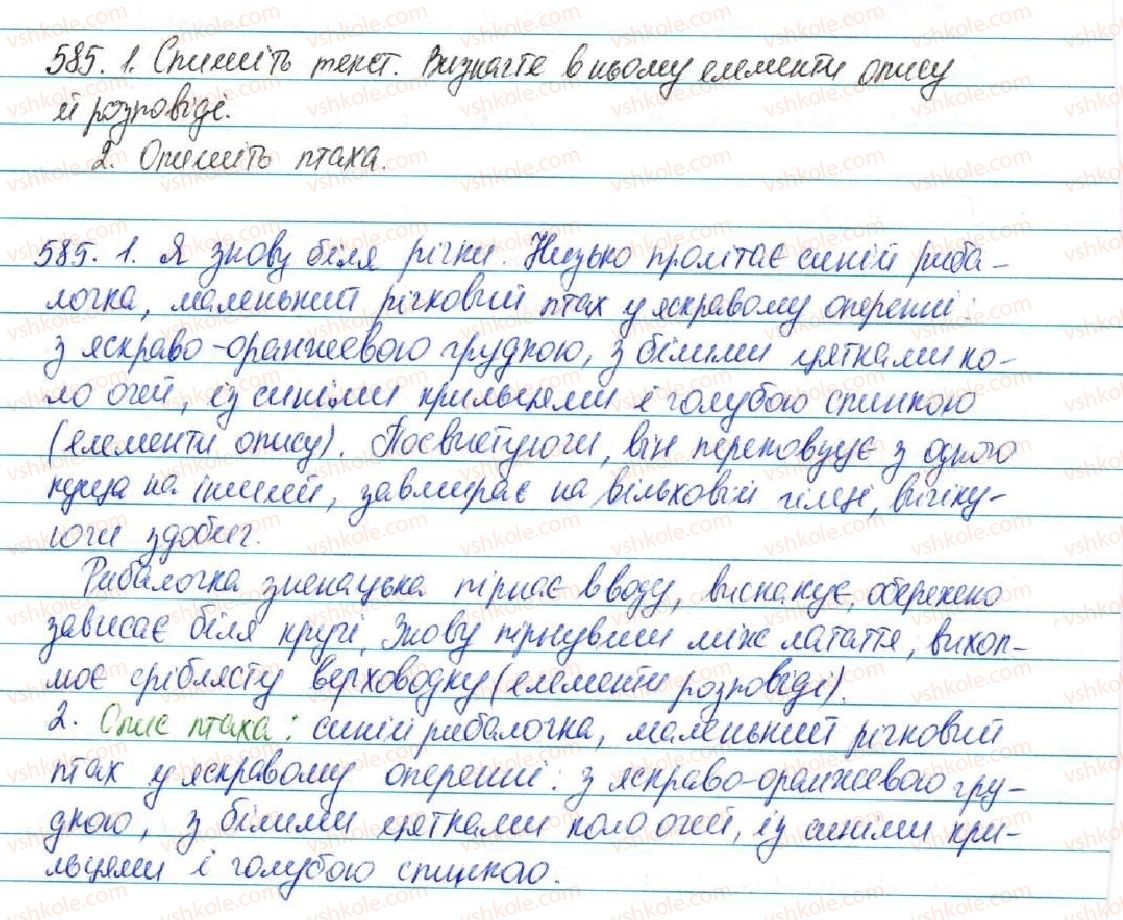 585. 1. Спишіть текст. Визначте в ньому елементи опису
й розповіді.
2. Опишіть птаха.
585. 1. Я знову біля річки. Низько пролітає синій риба-
лочка, маленький річковий птах у яскравому оперенні:
з яскраво-оранжевою грудкою, з білими цятками ко-
ло очей, із синіми крильцями і голубою спинкою
(елементи опису). Посвистуючи, він перепурхує з одного
куща на інший, завмирає на вільховій гілці, вичіку-
ючи здобич.
Рибалочка зненацька пірнає в воду, вискакує, обережно
зависає біля кручі. Знову пірнувши між латаття, вихоп-
лює сріблясту верховодку (елементи розповіді).
2. Опис птаха: синій рибалочка, маленький річковий
птах у яскравому оперенні: з яскраво-оранжевою гру-
дкою, з білими цятками коло очей, із синіми кри-
льцями і голубою спинкою.